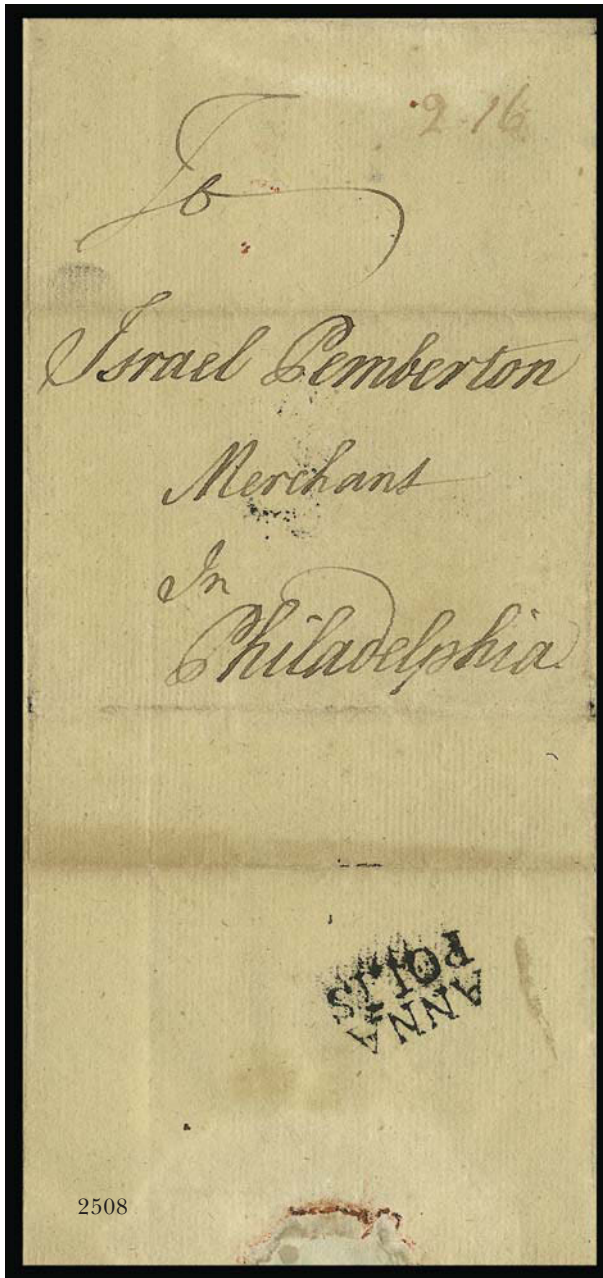 2.16
To
Israel Pemberton
Merchant
In
Philadelphia
ANNA
POLIS
2508